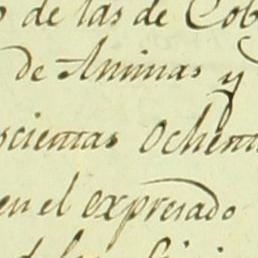 de las de Cob
de Animas y
scientas Ochent
en el expresado